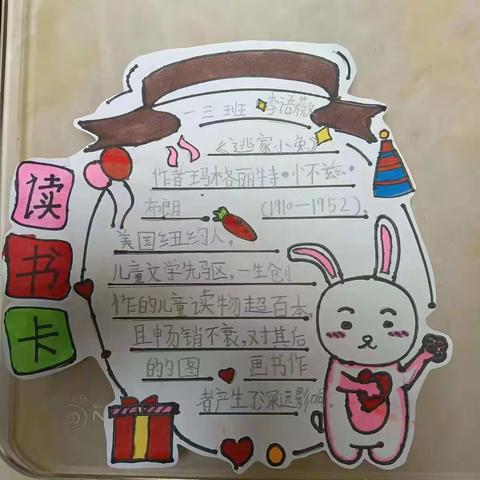 读
书
卡
一三班 李语薇
《逃家小兔》
作者玛格丽特·怀兹·
布朗 (1910—1952),
美国纽约人,
儿童文学先驱,一生创
作的儿童读物超百本,
且畅销不衰,对其后
的的图 画书作
者产生了深远影响.